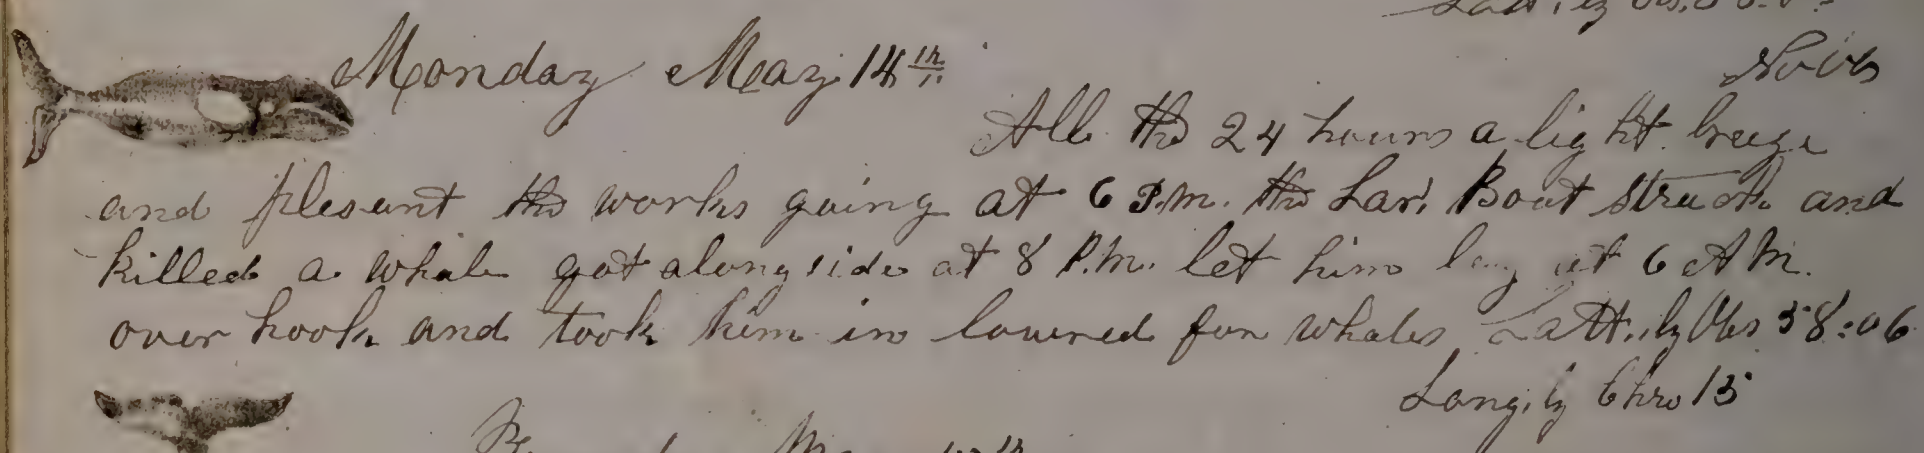 Monday May 14th
No Obs
All the 24 hours a light breeze
and plesant the works going at 6 P.M. the Lar. Boat Struck and
killed a whale got along side at 8 P.M. let him lay at 6 A M.
over hook and took him in lowred for whales Latt. by Obs 38:06
Long. by Chro 15